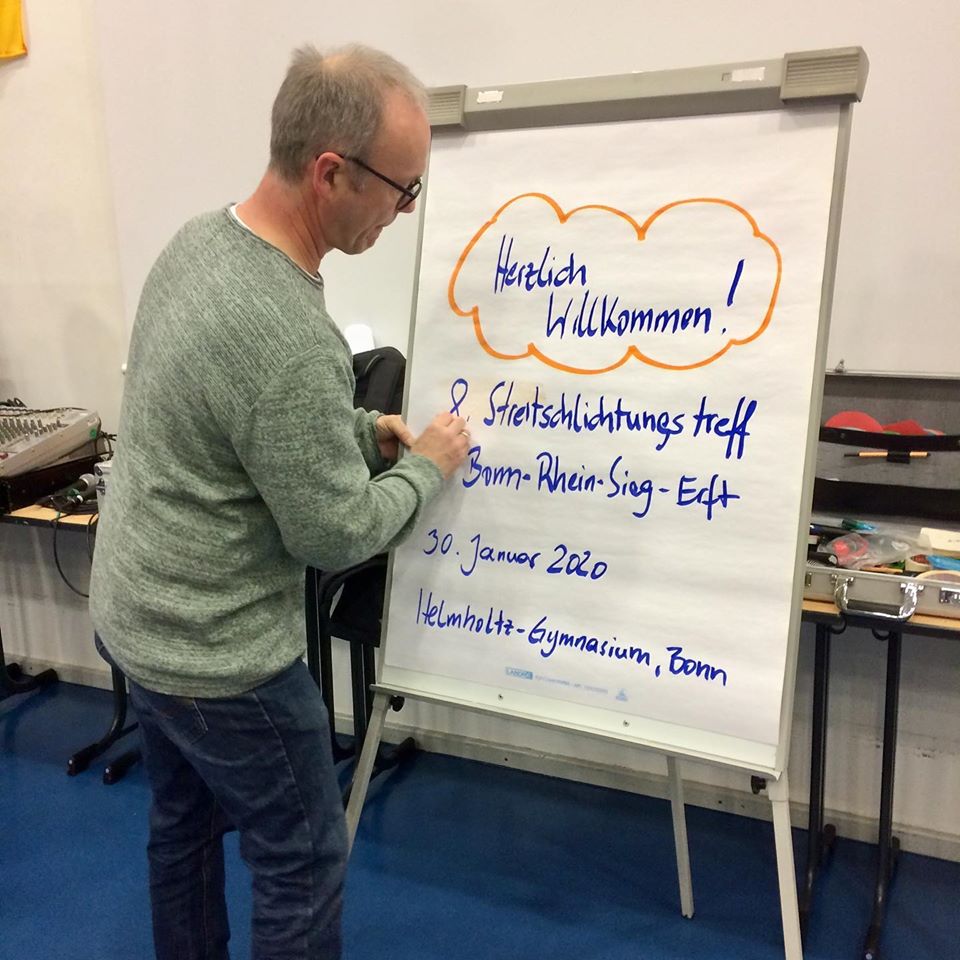 Herzlich
Willkommen!
8. Streitschlichtungstreff
Bonn-Rhein-Sieg-Erft
30. Januar 2020
Helmholtz-Gymnasium, Bonn